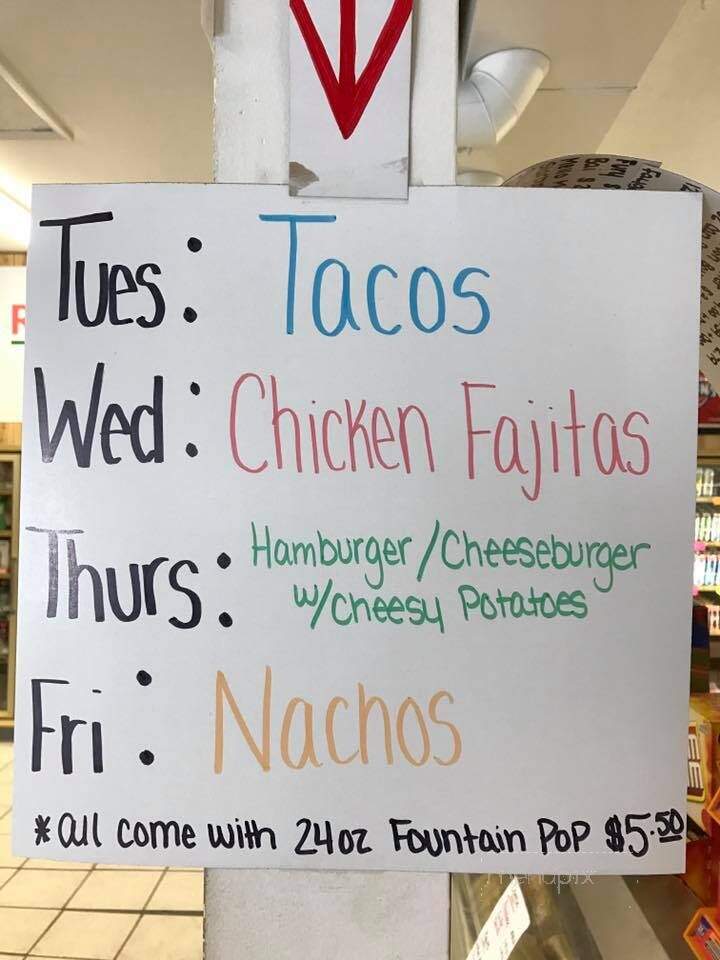 Tues: Tacos
Wed: Chicken Fajitas
Thurs: Hamburger/Cheeseburger
w/cheesy Potatoes
Fri: Nachos
*all come with 24oz Fountain Pop $5.50
menupix